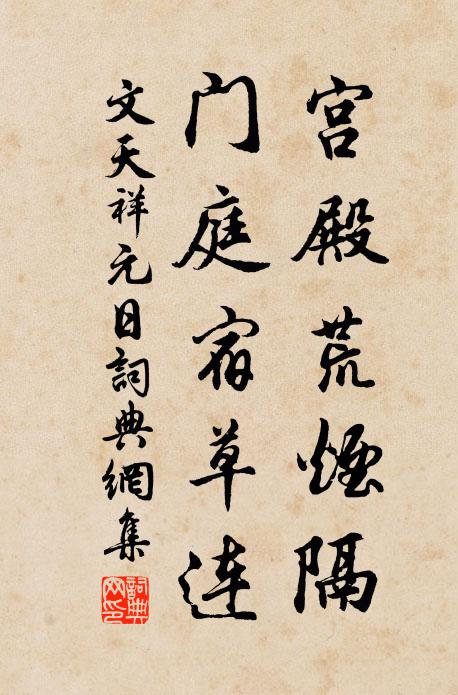 宫殿荒煙隔
门庭宿草连
文天祥元日詞典網集
詞典网印